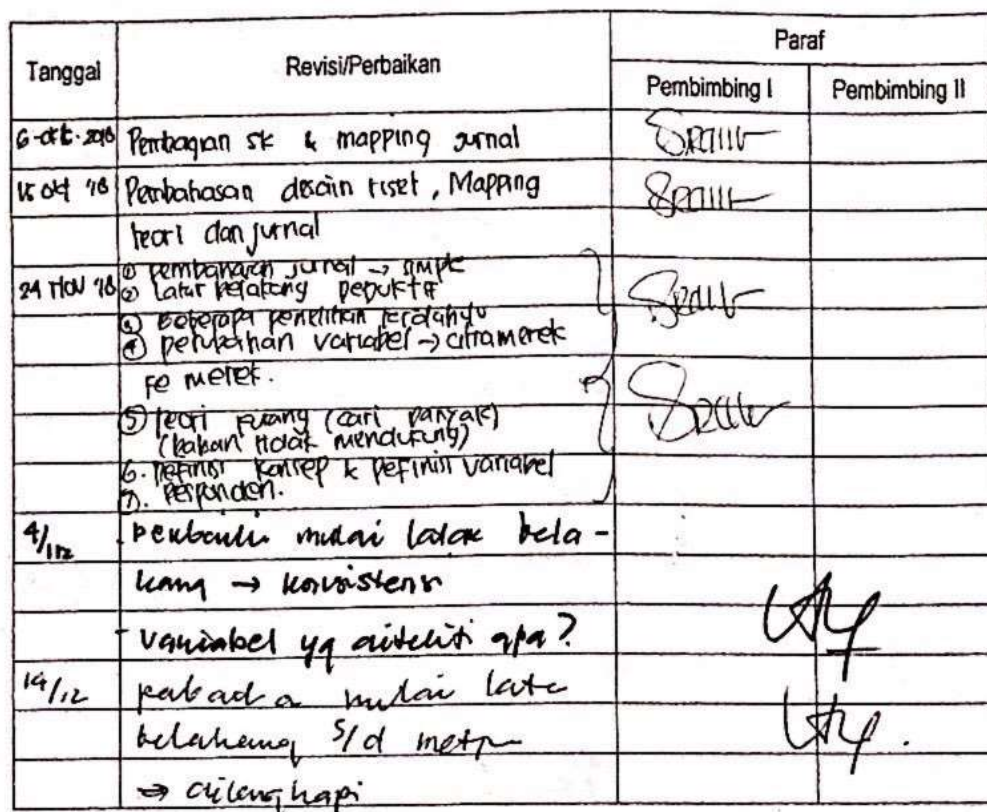 Tanggal Revisi/Perbaikan Paraf
Pembimbing I Pembimbing II
6-okt-2018 Pembagian SK & mapping jurnal
15 okt '18 Pembahasan desain riset, Mapping
teori dan jurnal
24 NOV '18 ① pembahasan jurnal → simple
② Latar belakang
③ Beberapa penelitian terdahulu
④ perubahan variabel → citra merek
ke merek.
⑤ teori kurang (cari banyak)
(bahan tidak mendukung)
6. Definisi konsep & definisi variabel
7. Responden.
4/12 - perbaiki mulai latar bela-
kang → konsistensi
- variabel yg diteliti apa?
14/12 mulai latar
belakang s/d
⇒ dilengkapi